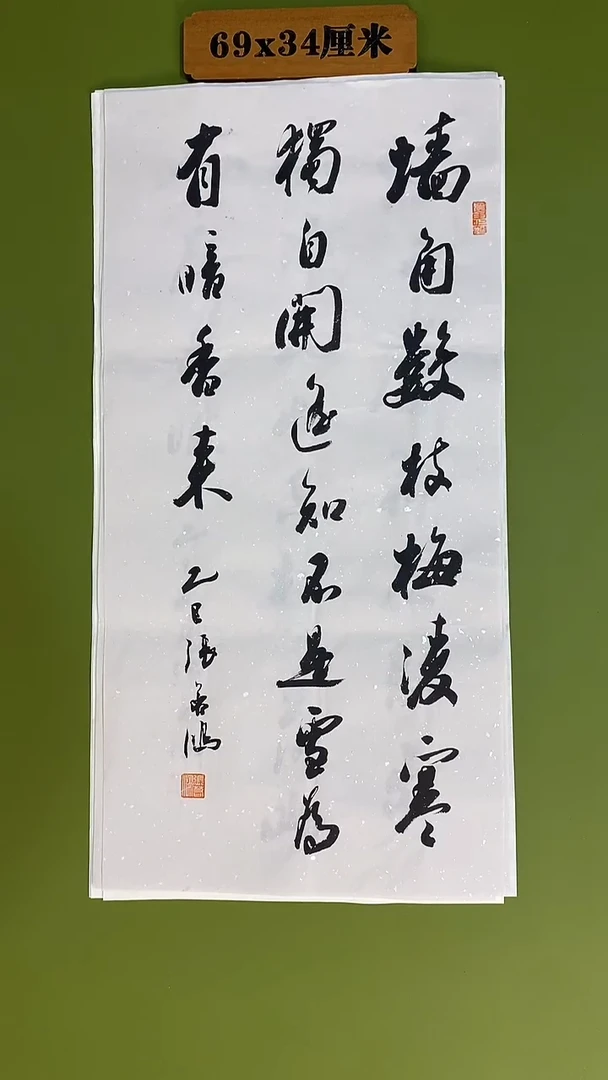 69x34厘米
墙角數枝梅淩寒
獨自開遥知不是雪為
有暗香来
乙巳張鴻